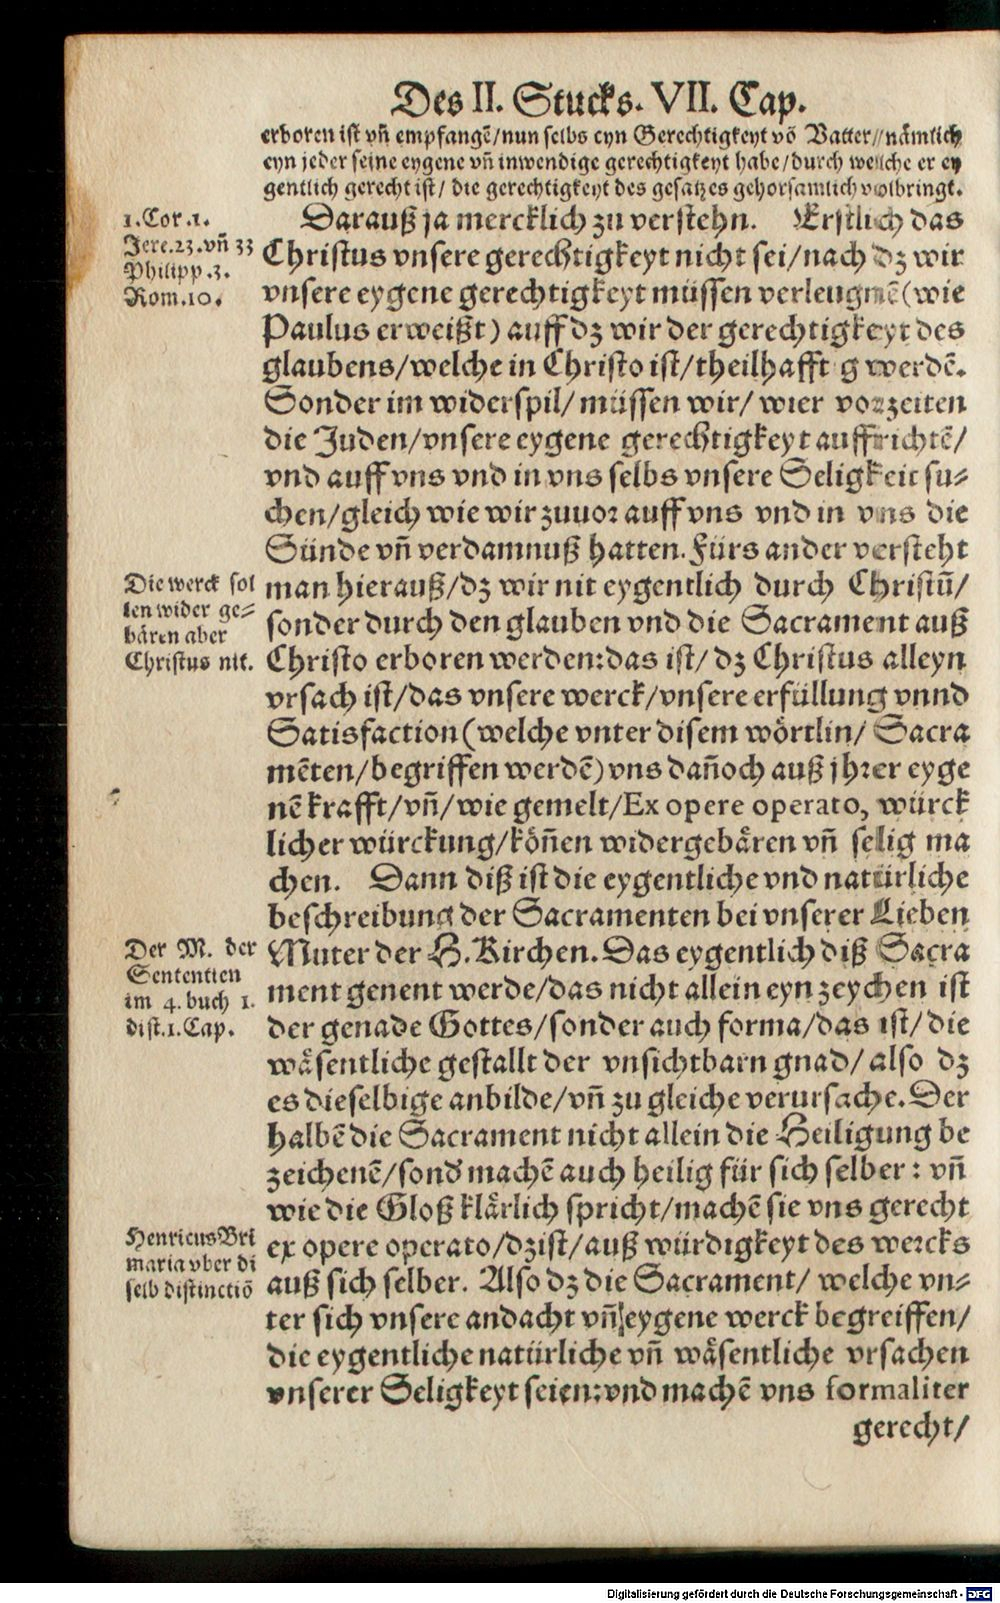 Des II. Stucks. VII. Cap.
erboren ist vñ empfangẽ/nun selbs eyn Gerechtigkeyt võ Vatter//nämlich
eyn jeder seine eygene vñ inwendige gerechtigkeyt habe/durch welche er ey
gentlich gerecht ist/ die gerechtigkeyt des gesatzes gehorsamlich volbringt.
1. Cor. 1.
Jere. 23. vñ 33
Philipp. 3.
Rom. 10.
Darauß ja mercklich zu verstehn. Erstlich das
Christus vnsere gerechtigkeyt nicht sei/nach dz wir
vnsere eygene gerechtigkeyt müssen verleugnẽ (wie
Paulus erweißt) auff dz wir der gerechtigkeyt des
glaubens/welche in Christo ist/theilhafft g werdẽ.
Sonder im widerspil/ müssen wir/ wier vorzeiten
die Juden/vnsere eygene gerechtigkeyt auffrichtẽ/
vnd auff vns vnd in vns selbs vnsere Seligkeit su-
chen/gleich wie wir zuuor auff vns vnd in vns die
Sünde vñ verdamnuß hatten. Fürs ander versteht
Die werck sol
len wider ge-
bären aber
Christus nit.
man hierauß/dz wir nit eygentlich durch Christũ/
sonder durch den glauben vnd die Sacrament auß
Christo erboren werden:das ist/ dz Christus alleyn
vrsach ist/das vnsere werck/vnsere erfüllung vnnd
Satisfaction (welche vnter disem wörtlin/ Sacra
mẽten/begriffen werdẽ) vns dañoch auß jhrer eyge
nẽ krafft/vñ/wie gemelt/Ex opere operato, würck
licher würckung/köñen widergebären vñ selig ma
chen. Dann diß ist die eygentliche vnd natürliche
beschreibung der Sacramenten bei vnserer Lieben
Der M. der
Sententien
im 4. buch 1.
dist. 1. Cap.
Muter der H. Kirchen. Das eygentlich diß Sacra
ment genent werde/das nicht allein eyn zeychen ist
der genade Gottes/sonder auch forma/das ist/die
wäsentliche gestallt der vnsichtbarn gnad/ also dz
es dieselbige anbilde/vñ zu gleiche verursache. Der
halbẽ die Sacrament nicht allein die Heiligung be
zeichenẽ/sond' machẽ auch heilig für sich selber : vñ
wie die Gloß klärlich spricht/machẽ sie vns gerecht
Henricus Bri
maria vber di
selb distinctiõ
ex opere operato/dz ist/auß würdigkeyt des wercks
auß sich selber. Also dz die Sacrament/ welche vn-
ter sich vnsere andacht vñ eygene werck begreiffen/
die eygentliche natürliche vñ wäsentliche vrsachen
vnserer Seligkeyt seien:vnd machẽ vns formaliter
gerecht/
Digitalisierung gefördert durch die Deutsche Forschungsgemeinschaft - DFG